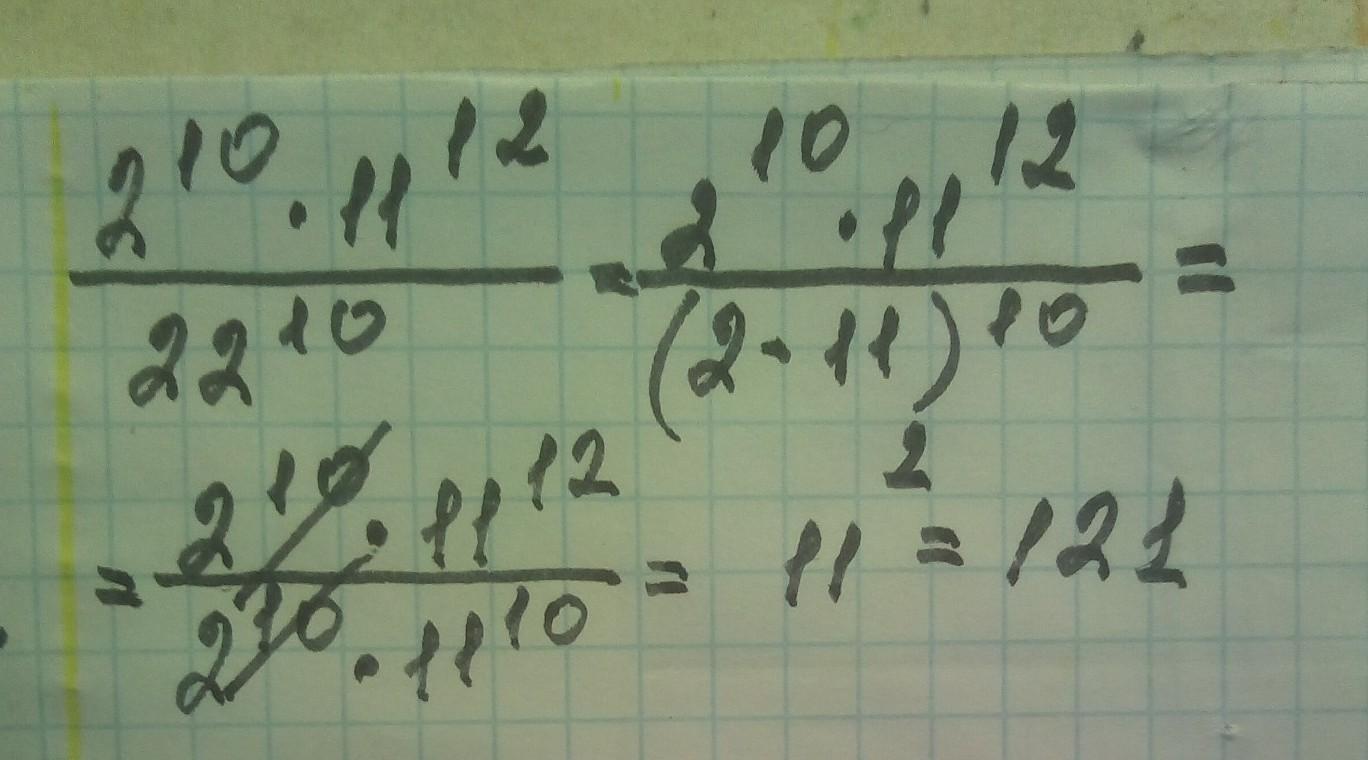 \frac{2^{10} \cdot 11^{12}}{22^{10}} = \frac{2^{10} \cdot 11^{12}}{(2 \cdot 11)^{10}} =
= \frac{2^{10} \cdot 11^{12}}{2^{10} \cdot 11^{10}} = 11^{2} = 121